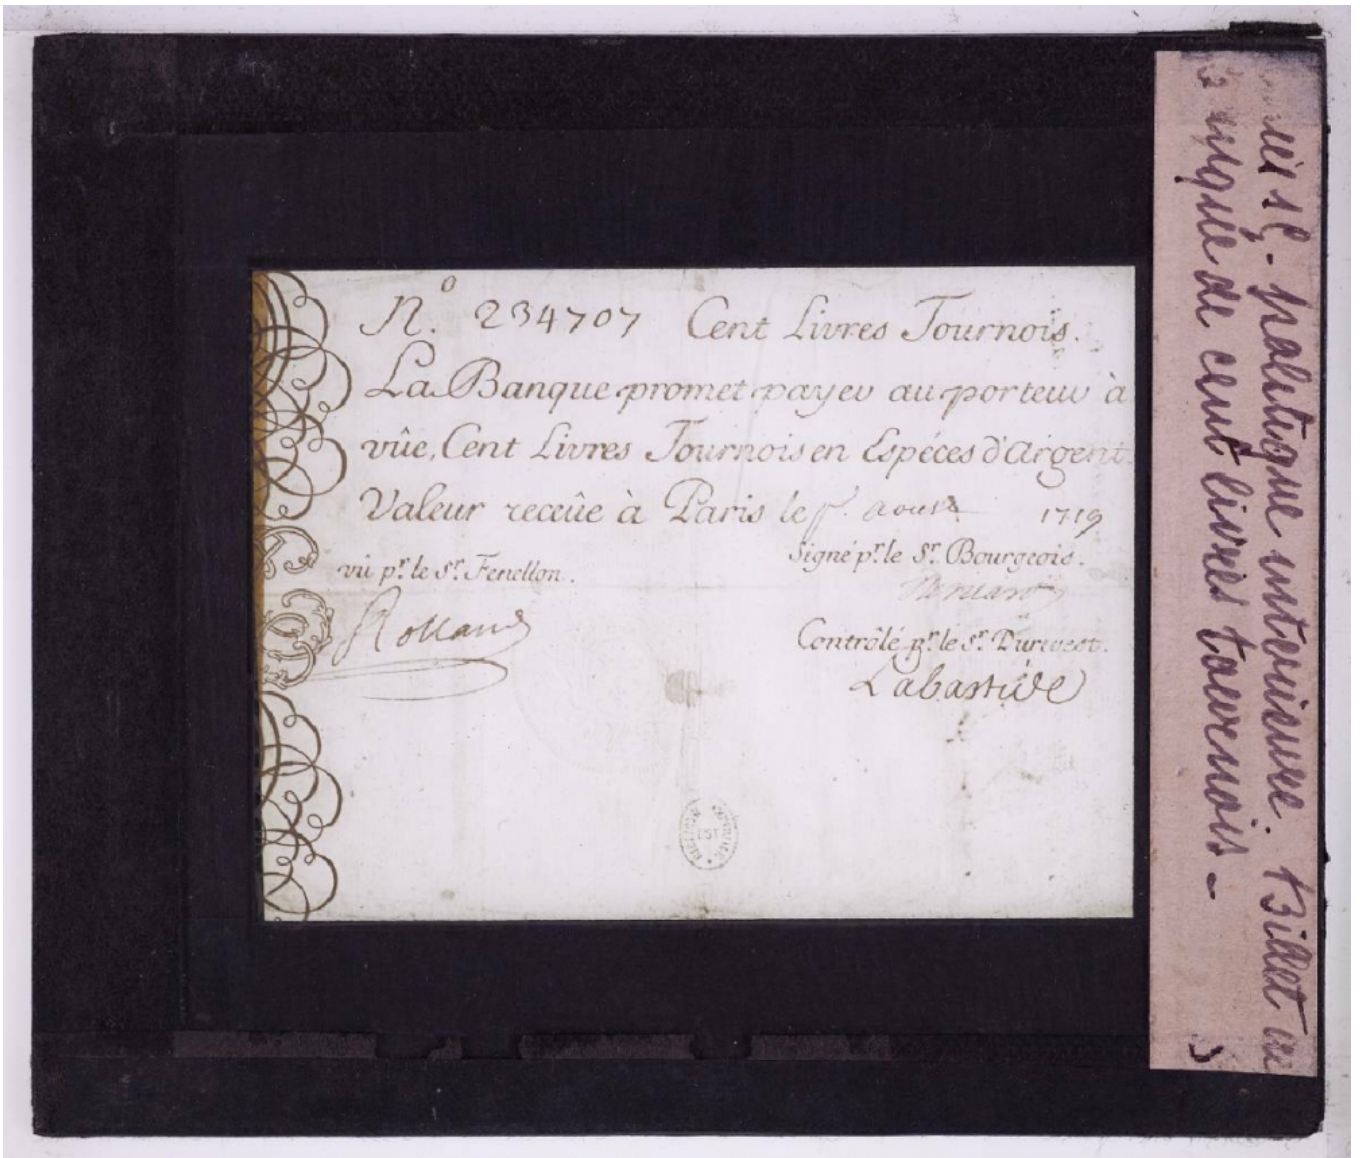 N.º 234707 Cent Livres Tournois.
La Banque promet payer au porteur à
vûe, Cent Livres Tournois en Espéces d'Argent.
Valeur receüe à Paris le aoust 1719
vû pr. le Sr. Fenellon.
Signé pr. le Sr. Bourgeois.
Rolland
Contrôlé pr. le Sr. Durevest.
Labastide
politique interieure. Billet de
de cent livres tournois -